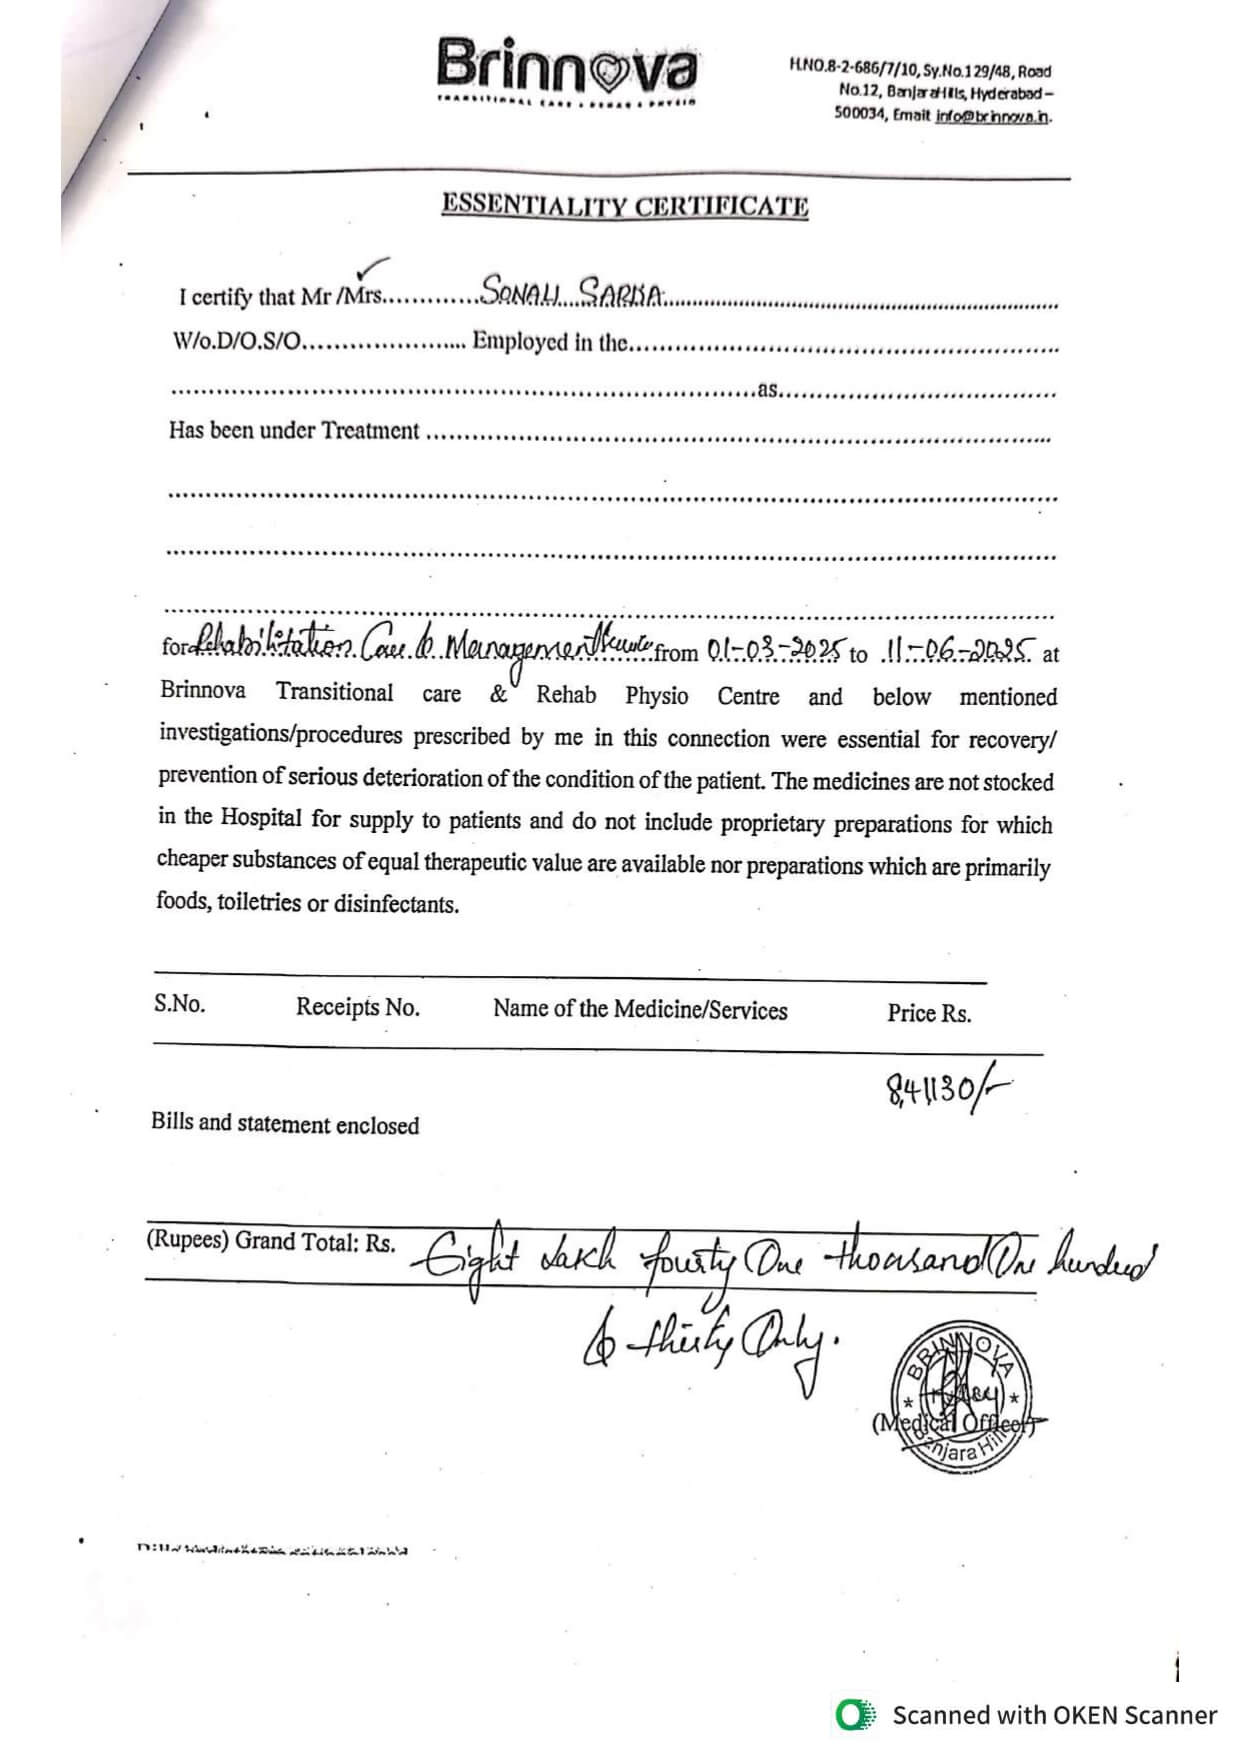 Brinnova
TRANSITIONAL CARE • REHAB & PHYSIO
H.NO.8-2-686/7/10, Sy.No.129/48, Road
No.12, BanjaraHills, Hyderabad –
500034, Email: info@brinnova.in.
ESSENTIALITY CERTIFICATE
I certify that Mr /Mrs............SONALI SARDA..........
W/o.D/O.S/O...................... Employed in the..........
..........as..........
Has been under Treatment ..........
for Rehabilitation Care & Management from 01-03-2025 to 11-06-2025 at
Brinnova Transitional care & Rehab Physio Centre and below mentioned
investigations/procedures prescribed by me in this connection were essential for recovery/
prevention of serious deterioration of the condition of the patient. The medicines are not stocked
in the Hospital for supply to patients and do not include proprietary preparations for which
cheaper substances of equal therapeutic value are available nor preparations which are primarily
foods, toiletries or disinfectants.
S.No. Receipts No. Name of the Medicine/Services Price Rs.
8,41,130/-
Bills and statement enclosed
(Rupees) Grand Total: Rs. Eight Lakh fourty One thousand One hundred
& thirty Only.
BRINNOVA
(Medical Officer)
Banjara Hills
Scanned with OKEN Scanner